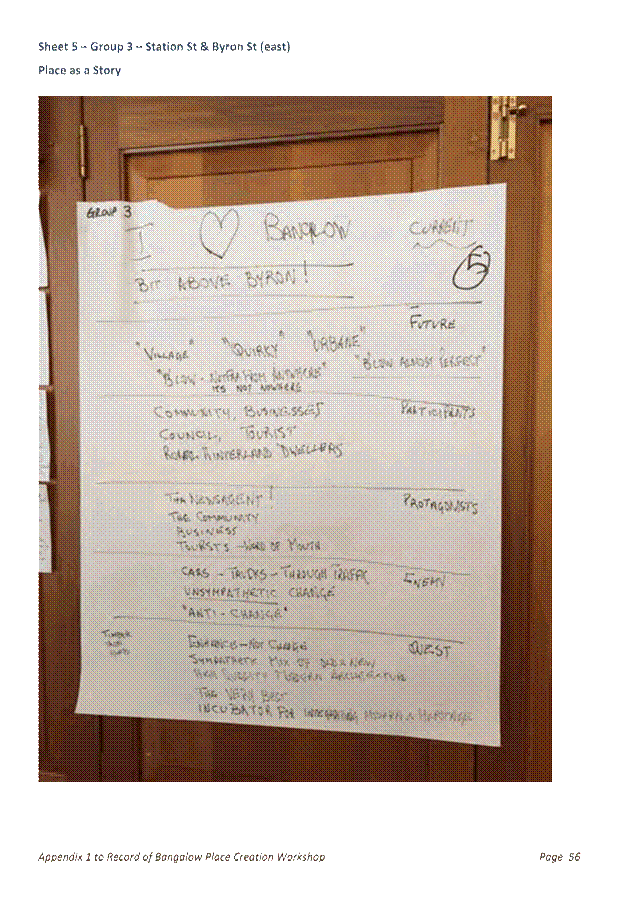 Sheet 5 – Group 3 – Station St & Byron St (east)
Place as a Story
GROUP 3
I ♡ BANGLOW CURRENT
5
BIT ABOVE BYRON!
FUTURE
"VILLAGE" "QUIRKY" "URBANE"
"B'LOW ALMOST PERFECT"
"B'LOW - NOT FAR FROM ANYWHERE"
ITS NOT NOWHERE
COMMUNITY, BUSINESSES PARTICIPANTS
COUNCIL, TOURIST
RURAL HINTERLAND DWELLERS
THE NEWSAGENT! PROTAGONISTS
THE COMMUNITY
BUSINESS
TOURISTS - WORD OF MOUTH
CARS - TRUCKS - THROUGH TRAFFIC ENEMY
UNSYMPATHETIC CHANGE
"ANTI - CHANGE"
TIMBER
ENHANCE - NOT CHANGE QUEST
SYMPATHETIC MIX OF OLD & NEW
HIGH QUALITY MODERN ARCHITECTURE
THE VERY BEST
INCUBATOR FOR INTEGRATING MODERN & HERITAGE
Appendix 1 to Record of Bangalow Place Creation Workshop Page 56